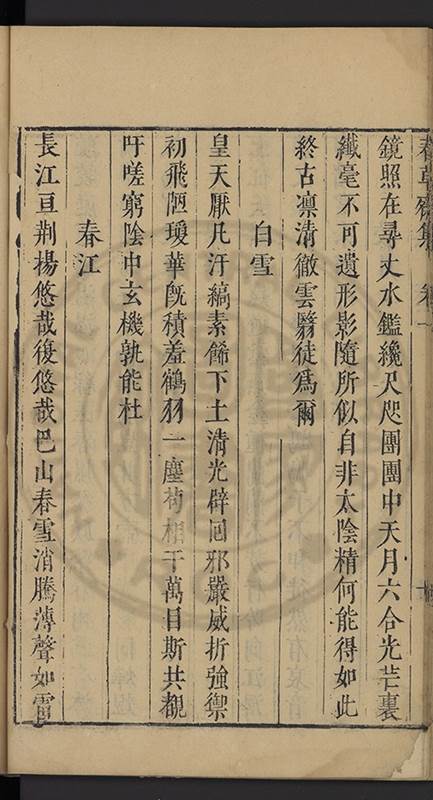 春草齋集 卷一 十
鏡照在尋丈水鑑纔尺咫團團中天月六合光芒裏
纖毫不可遺形影隨所似自非太陰精何能得如此
終古凛清徹雲翳徒爲爾
白雪
皇天厭凡汙縞素餙下土清光辟回邪嚴威折強禦
初飛陋瓊華旣積羞鶴羽一塵茍相干萬目斯共覩
吁嗟窮陰中玄機孰能杜
春江
長江亘荆楊悠哉復悠哉巴山春雪消騰薄聲如雷